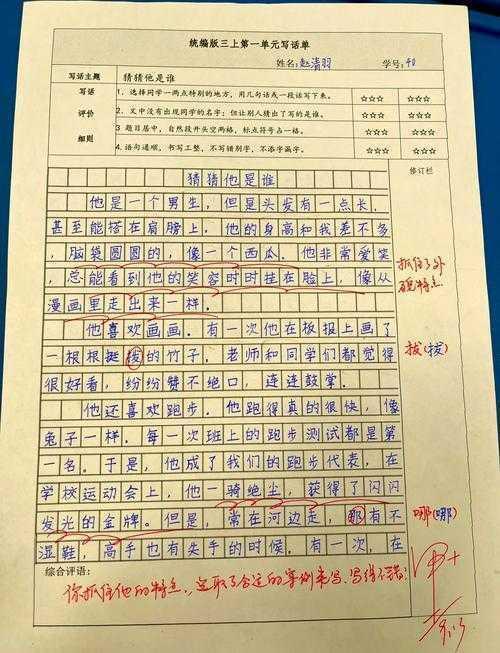 统编版三上第一单元写话单
姓名:赵清羽 学号:40
写话主题 猜猜他是谁
写话评价细则
1. 选择同学一两点特别的地方,用几句话或一段话写下来。 ☆☆☆ ☆☆☆
2. 文中没有出现同学的名字;但让别人猜出了写的是谁。 ☆☆☆ ☆☆☆
3 题目居中,自然段开头空两格,标点符号占一格。 ☆☆☆ ☆☆☆
4. 语句通顺,书写工整,不写错别字,不添字漏字。 ☆☆☆ ☆☆☆
修订栏
猜猜他是谁
他是一个男生,但是头发有一点长,
甚至能搭在肩膀上,他的身高和我差不多
,脑袋圆圆的,像一个西瓜。他非常爱笑
,总能看到他的笑容时时挂在脸上,像从
漫画里走出来一样。
抓住了外貌特点
他喜欢画画。有一次他在板报上画了
一根根挺拨的竹子,老师和同学们都觉得
拔(拔)
很好看,纷纷赞不绝口,连连鼓掌。
他还喜欢跑步。他跑得真的很快,像
兔子一样。每一次班上的跑步测试都是第
一名。于是,他成了我们的跑步代表,在
学校运动会上,他一骑绝尘,获得了闪闪
发光的金牌。但是,常在河边走,那有不
哪(哪)
湿鞋,高手也有失手的时候,有一次,在
综合评语:
你抓住他的特点,选取了合适的事例来写,写得不错!
甲+